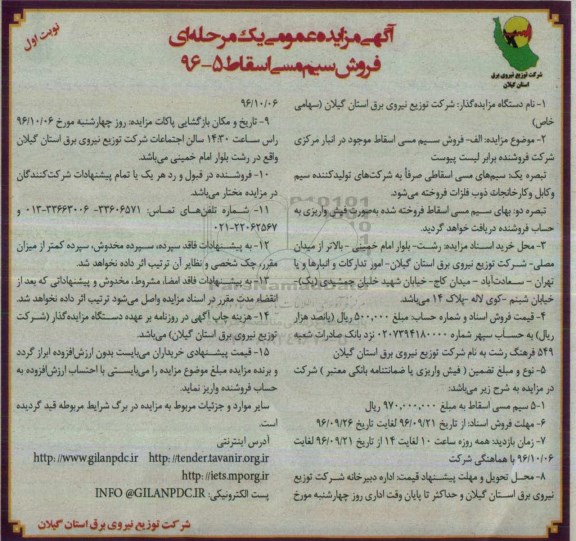 آگهی مزایده عمومی یک مرحله‌ای
فروش سیم مسی اسقاط ۵-۹۶
نوبت اول
شرکت توزیع نیروی برق
استان گیلان
۱- نام دستگاه مزایده‌گذار: شرکت توزیع نیروی برق استان گیلان (سهامی
خاص)
۲- موضوع مزایده: الف- فروش سیم مسی اسقاط موجود در انبار مرکزی
شرکت فروشنده برابر لیست پیوست
تبصره یک: سیم‌های مسی اسقاطی صرفاً به شرکت‌های تولیدکننده سیم
وکابل وکارخانجات ذوب فلزات فروخته می‌شود.
تبصره دو: بهای سیم مسی اسقاط فروخته شده به‌صورت فیش واریزی به
حساب فروشنده دریافت خواهد گردید.
۳- محل خرید اسناد مزایده: رشت- بلوار امام خمینی - بالاتر از میدان
مصلی- شرکت توزیع نیروی برق استان گیلان- امور تدارکات و انبارها و یا
تهران - سعادت‌آباد - میدان کاج- خیابان شهید خلیل چنددی (یک)-
خیابان شبنم -کوی لاله -پلاک ۱۴ می‌باشد.
۴- قیمت فروش اسناد و شماره حساب: مبلغ ۵۰۰,۰۰۰ ریال (پانصد هزار
ریال) به حساب سپهر شماره ۰۲۰۷۳۹۴۱۸۰۰۰۰ نزد بانک صادرات شعبه
۵۴۹ فرهنگ رشت به نام شرکت توزیع نیروی برق استان گیلان
۵- نوع و مبلغ تضمین ( فیش واریزی یا ضمانتنامه بانکی معتبر ) شرکت
در مزایده به شرح زیر می‌باشد:
۵-۱ سیم مسی اسقاط به مبلغ ۹۷۰,۰۰۰,۰۰۰ ریال
۶- مهلت فروش اسناد: از تاریخ ۹۶/۰۹/۲۱ لغایت تاریخ ۹۶/۰۹/۲۶
۷- زمان بازدید: همه روزه ساعت ۱۰ لغایت ۱۴ از تاریخ ۹۶/۰۹/۲۱ لغایت
۹۶/۱۰/۰۶ با هماهنگی شرکت
۸- محل تحویل و مهلت پیشنهاد قیمت: اداره دبیرخانه شرکت توزیع
نیروی برق استان گیلان و حداکثر تا پایان وقت اداری روز چهارشنبه مورخ
۹۶/۱۰/۰۶
۹- تاریخ و مکان بازگشایی پاکات مزایده: روز چهارشنبه مورخ ۹۶/۱۰/۰۶
راس ساعت ۱۴:۳۰ سالن اجتماعات شرکت توزیع نیروی برق استان گیلان
واقع در رشت بلوار امام خمینی می‌باشد.
۱۰- فروشنده در قبول و رد هر یک یا تمام پیشنهادات شرکت‌کنندگان
در مزایده مختار می‌باشد.
۱۱- شماره تلفن‌های تماس: ۳۳۶۰۶۵۷۱- ۳۳۶۶۳۰۰۶-۰۱۳ و
۰۲۱-۲۲۰۶۲۵۶۷
۱۲- به پیشنهادات فاقد سپرده، سپرده مخدوش، سپرده کمتر از میزان
مقرر، چک شخصی و نظایر آن ترتیب اثر داده نخواهد شد.
۱۳- به پیشنهادات فاقد امضا، مشروط، مخدوش و پیشنهاداتی که بعد از
انقضاء مدت مقرر در اسناد مزایده واصل می‌شود ترتیب اثر داده نخواهد شد.
۱۴- هزینه چاپ آگهی در روزنامه بر عهده دستگاه مزایده‌گذار (شرکت
توزیع نیروی برق استان گیلان) می‌باشد.
۱۵- قیمت پیشنهادی خریداران می‌بایست بدون ارزش‌افزوده ابراز گردد
و برنده مزایده مبلغ موضوع مزایده را می‌بایستی با احتساب ارزش‌افزوده به
حساب فروشنده واریز نماید.
سایر موارد و جزئیات مربوط به مزایده در برگ شرایط مربوطه قید گردیده
است.
آدرس اینترنتی
http://www.gilanpdc.ir http://tender.tavanir.org.ir
http://iets.mporg.ir
پست الکترونیکی: INFO @GILANPDC.IR
شرکت توزیع نیروی برق استان گیلان